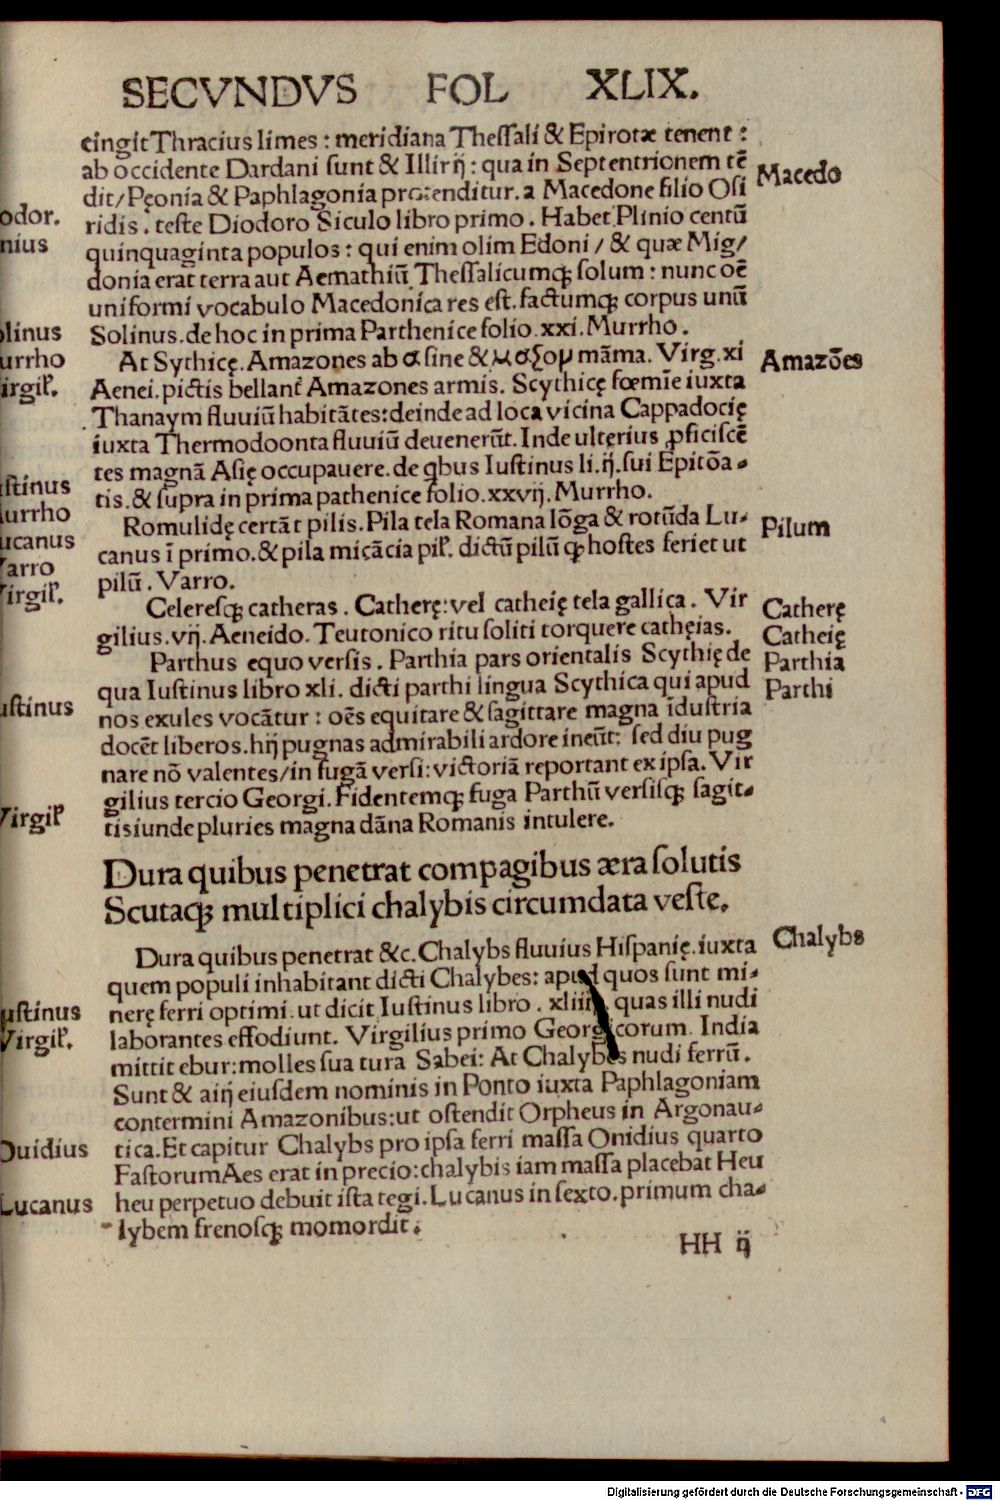 SECVNDVS FOL XLIX.
tingit Thracius limes : meridiana Theſſali & Epirotæ tenent :
ab occidente Dardani ſunt & Illirij : qua in Septentrionem tẽ
dit/ Pęonia & Paphlagonia protenditur. a Macedone filio Oſi
Macedo
ridis . teſte Diodoro Siculo libro primo . Habet Plinio centũ
odor.
quinquaginta populos : qui enim olim Edoni / & quæ Mig/
nius
donia erat terra aut Aemathiũ Theſſalicumqꝫ ſolum : nunc oẽ
uniformi vocabulo Macedonica res eſt. factumqꝫ corpus unũ
Solinus. de hoc in prima Parthenice folio. xxi. Murrho .
olinus
At Sythicę. Amazones ab α ſine & μαζομ mãma. Virg. xi
urrho
Amazões
Aenei. pictis bellant̃ Amazones armis. Scythicę fœmiẽ iuxta
irgil'.
Thanaym fluuiũ habitãtes: deinde ad loca vicina Cappadocię
iuxta Thermodoonta fluuiũ deuenerũt. Inde ulterius ꝓficiſcẽ
tes magnã Aſię occupauere. de qbus Iuſtinus li. ij. ſui Epitõa⸗
uſtinus
tis. & ſupra in prima pathenice folio. xxvij. Murrho.
urrho
Romulidę certãt pilis. Pila tela Romana lõga & rotũda Lu⸗
Pilum
canus ĩ primo. & pila micãcia pil'. dictũ pilũ qꝫ hoſtes feriet ut
ucanus
pilũ . Varro.
arro
Celereſqꝫ catheras . Catherę: vel catheię tela gallica . Vir
Virgil'.
Catherę
gilius. vij. Aeneido. Teutonico ritu ſoliti torquere cathęias.
Catheię
Parthus equo verſis . Parthia pars orientalis Scythię de
Parthia
qua Iuſtinus libro xli. dicti parthi lingua Scythica qui apud
Parthi
nos exules vocãtur : oẽs equitare & ſagittare magna ĩduſtria
uſtinus
docẽt liberos. hij pugnas admirabili ardore ineũt: ſed diu pug
nare nõ valentes/ in fugã verſi: victoriã reportant ex ipſa. Vir
gilius tercio Georgi. Fidentemqꝫ fuga Parthũ verſiſqꝫ ſagit⸗
Virgil'
tisiunde pluries magna dãna Romanis intulere.
Dura quibus penetrat compagibus æra ſolutis
Scutaqꝫ multiplici chalybis circumdata veſte.
Dura quibus penetrat &c. Chalybs fluuius Hiſpanię. iuxta
Chalybs
quem populi inhabitant dicti Chalybes: apud quos ſunt mi⸗
nerę ferri optimi. ut dicit Iuſtinus libro . xliiii. quas illi nudi
uſtinus
laborantes effodiunt. Virgilius primo Georgicorum. India
Virgil'.
mittit ebur: molles ſua tura Sabei: At Chalybes nudi ferrũ .
Sunt & aiij eiuſdem nominis in Ponto iuxta Paphlagoniam
contermini Amazonibus: ut oſtendit Orpheus in Argonau⸗
tica. Et capitur Chalybs pro ipſa ferri maſſa Onidius quarto
Ouidius
Faſtorum Aes erat in precio: chalybis iam maſſa placebat Heu
heu perpetuo debuit iſta tegi. Lucanus in ſexto. primum cha⸗
Lucanus
lybem frenoſqꝫ momordit.
HH ij
Digitalisierung gefördert durch die Deutsche Forschungsgemeinschaft - DFG